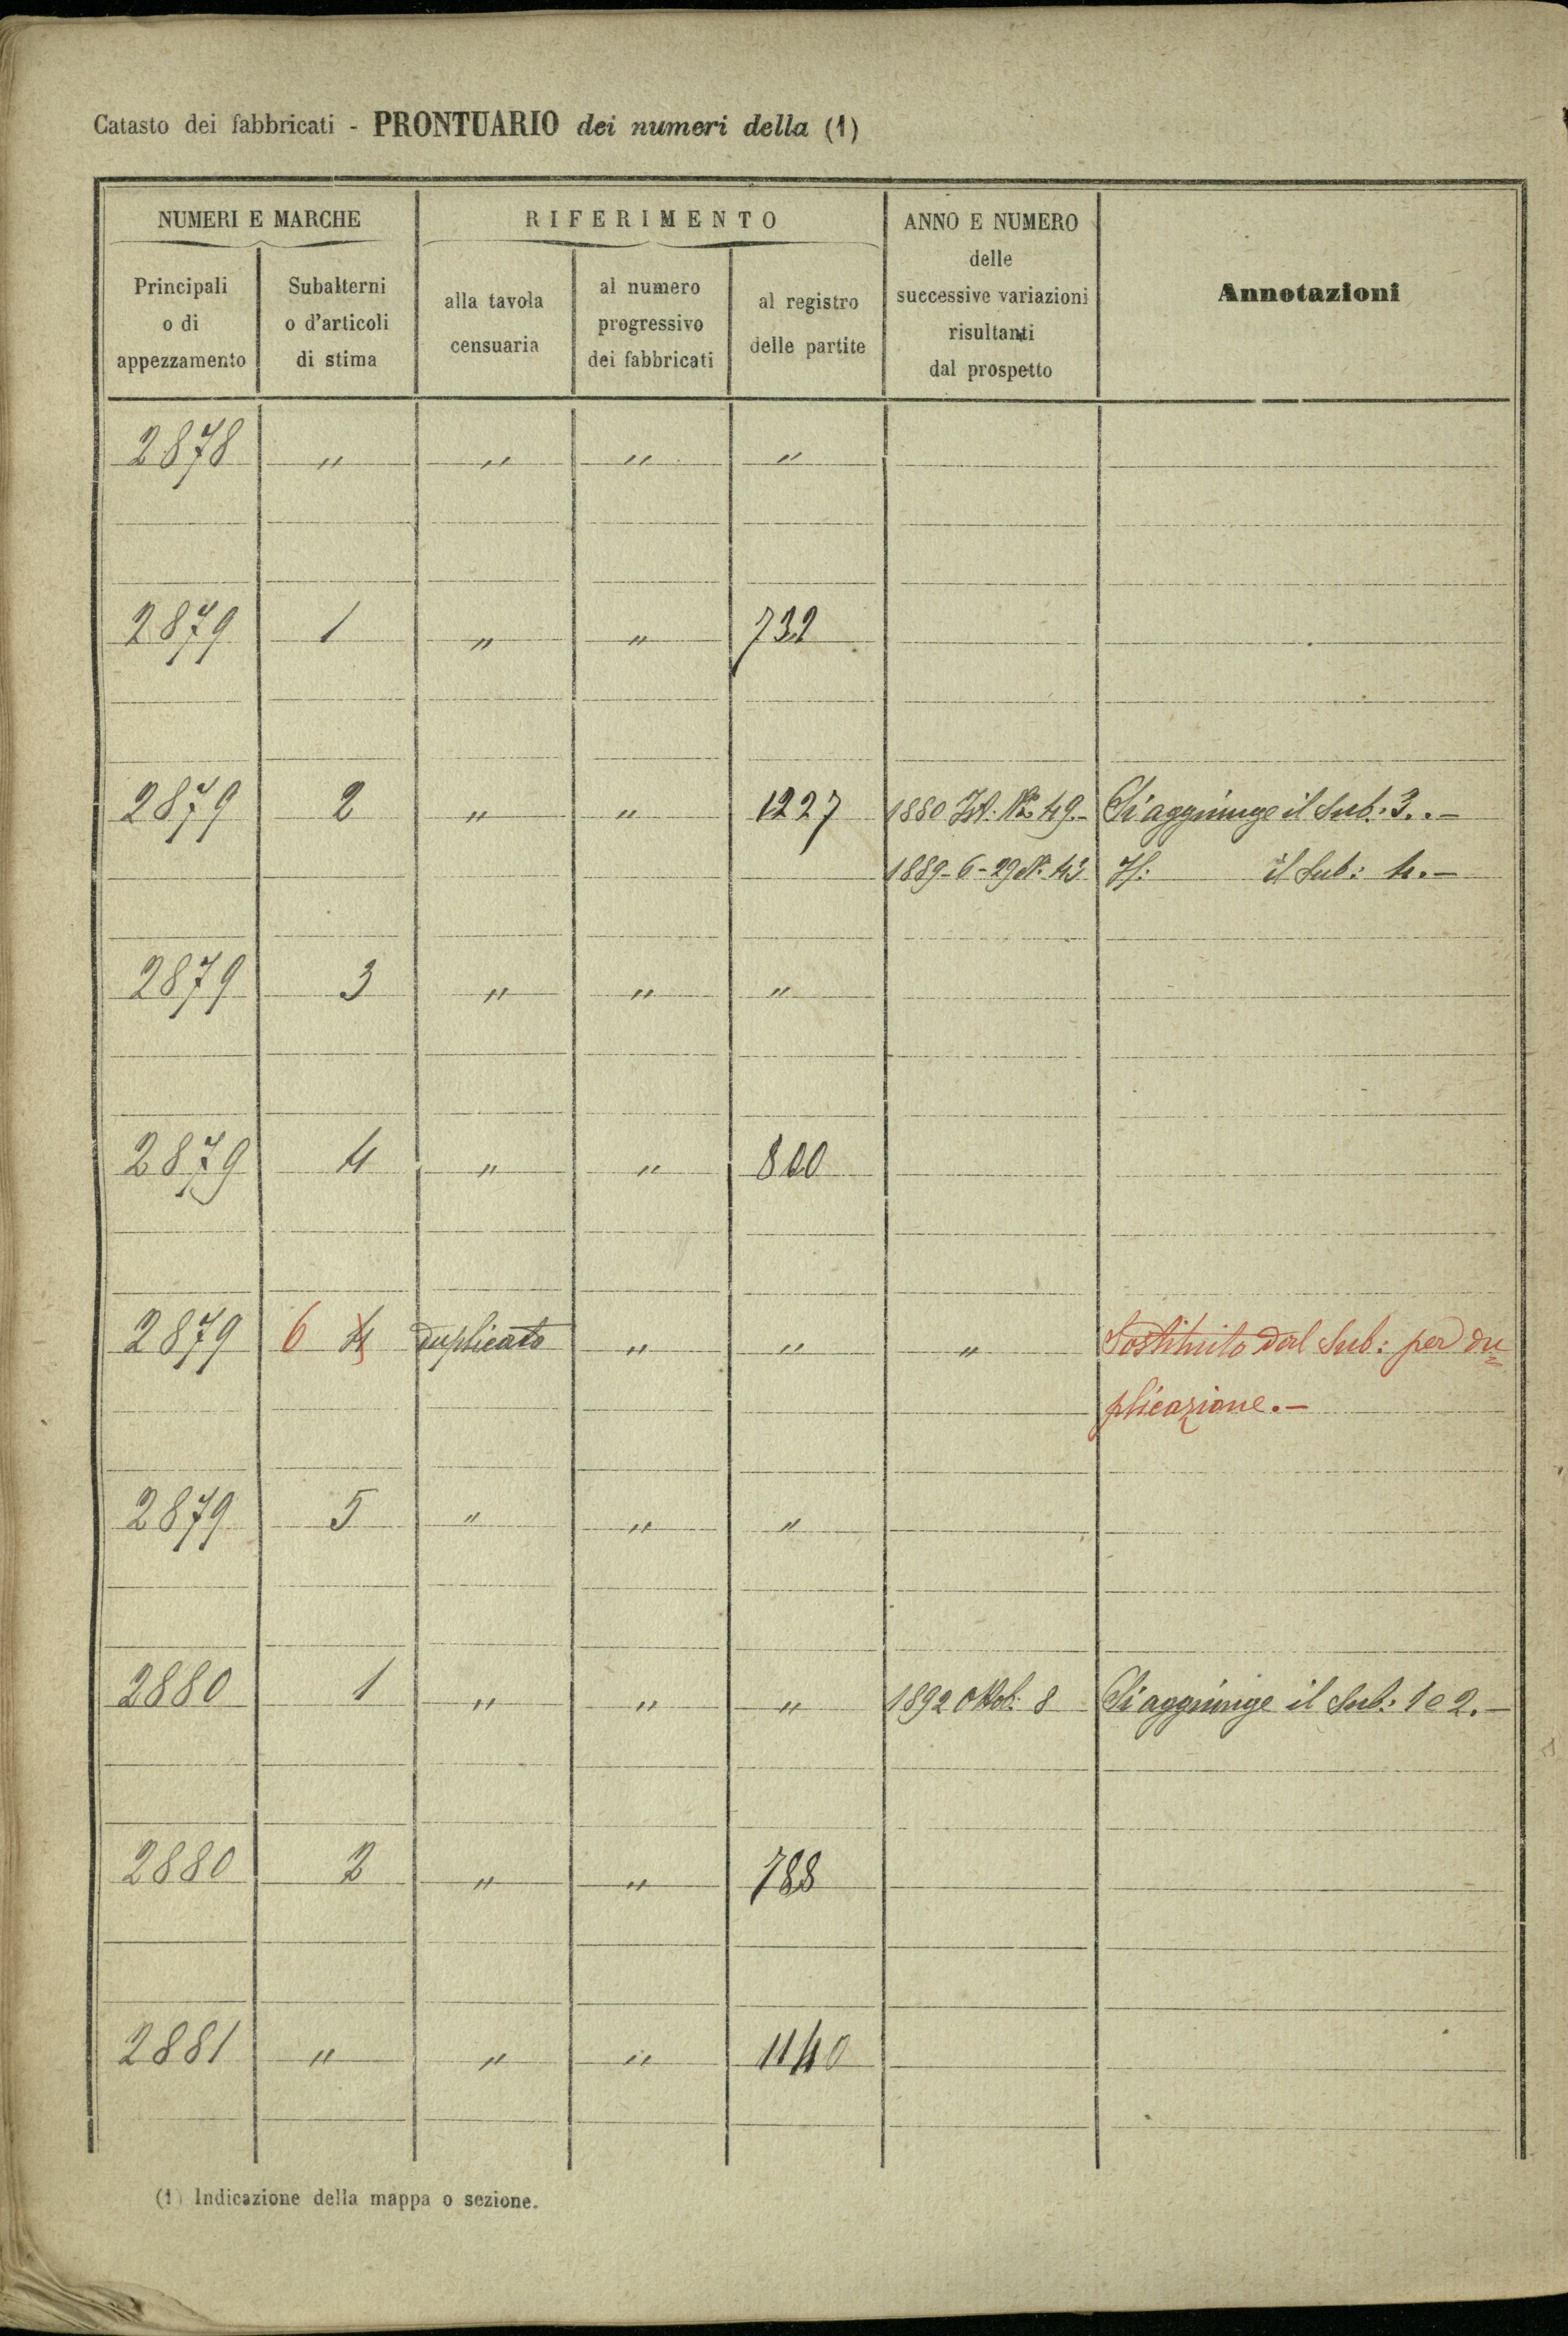 Catasto dei fabbricati - PRONTUARIO dei numeri della (1)
NUMERI E MARCHE
RIFERIMENTO
ANNO E NUMERO
delle
successive variazioni
risultanti
dal prospetto
Annotazioni
Principali
o di
appezzamento
Subalterni
o d'articoli
di stima
alla tavola
censuaria
al numero
progressivo
dei fabbricati
al registro
delle partite
2878 " " " "
2879 1 " "
2879 2 " " 1227 1880 No 49.- Si aggiunge il Sub: 3..-
1889-6-29 N. 43 Id: il Sub: 4.-
2879 3 " " "
2879 4 " " 800
2879 6 4 duplicato " " " Sostituito dal Sub: per du=
plicazione.-
2879 5 " " "
2880 1 " " " 1892 Ottob: 8 Si aggiunge il Sub: 1 e 2.-
2880 2 " " 788
2881 " " " 1140
(1) Indicazione della mappa o sezione.